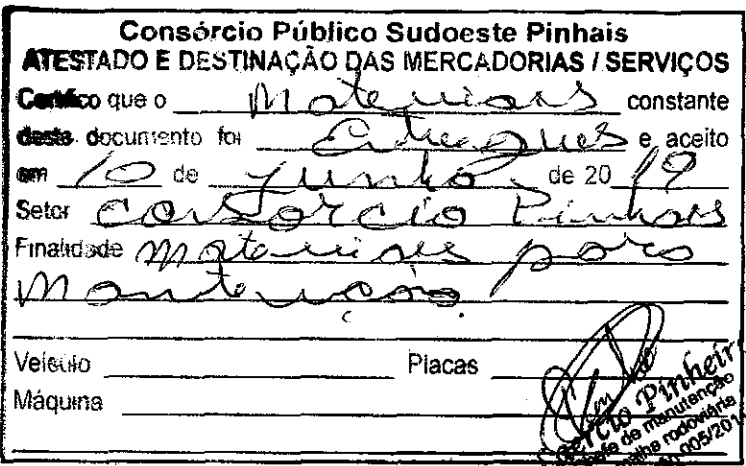 Consórcio Público Sudoeste Pinhais
ATESTADO E DESTINAÇÃO DAS MERCADORIAS / SERVIÇOS
Certifico que o Materiais constante
deste documento foi Entregues e aceito
em 10 de Junho de 2019
Setor Consorcio Pinhais
Finalidade Materiais para
Manutenção
Veículo Placas
Máquina
Pinheir
de manutenção
rodoviária
005/201